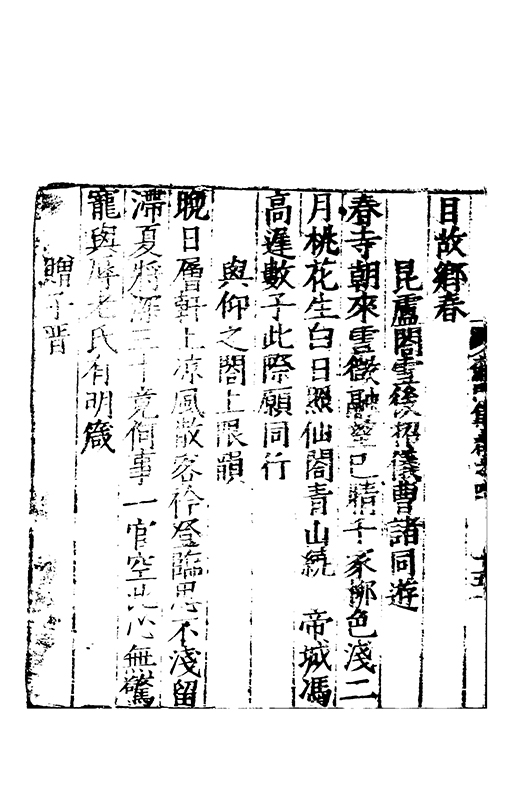 目故鄉春
毘盧閣雪後招儀曹諸同遊
春寺朝來雪微融壑已晴千家柳色淺二
月桃花生白日照仙閣青山繞 帝城馮
高遲數子此際願同行
與仰之閣上限韻
晚日層軒上凉風散客衿登臨思不淺留
滯夏將深三十竟何事一官空此心無驚
寵與辱老氏有明箴
贈子晋